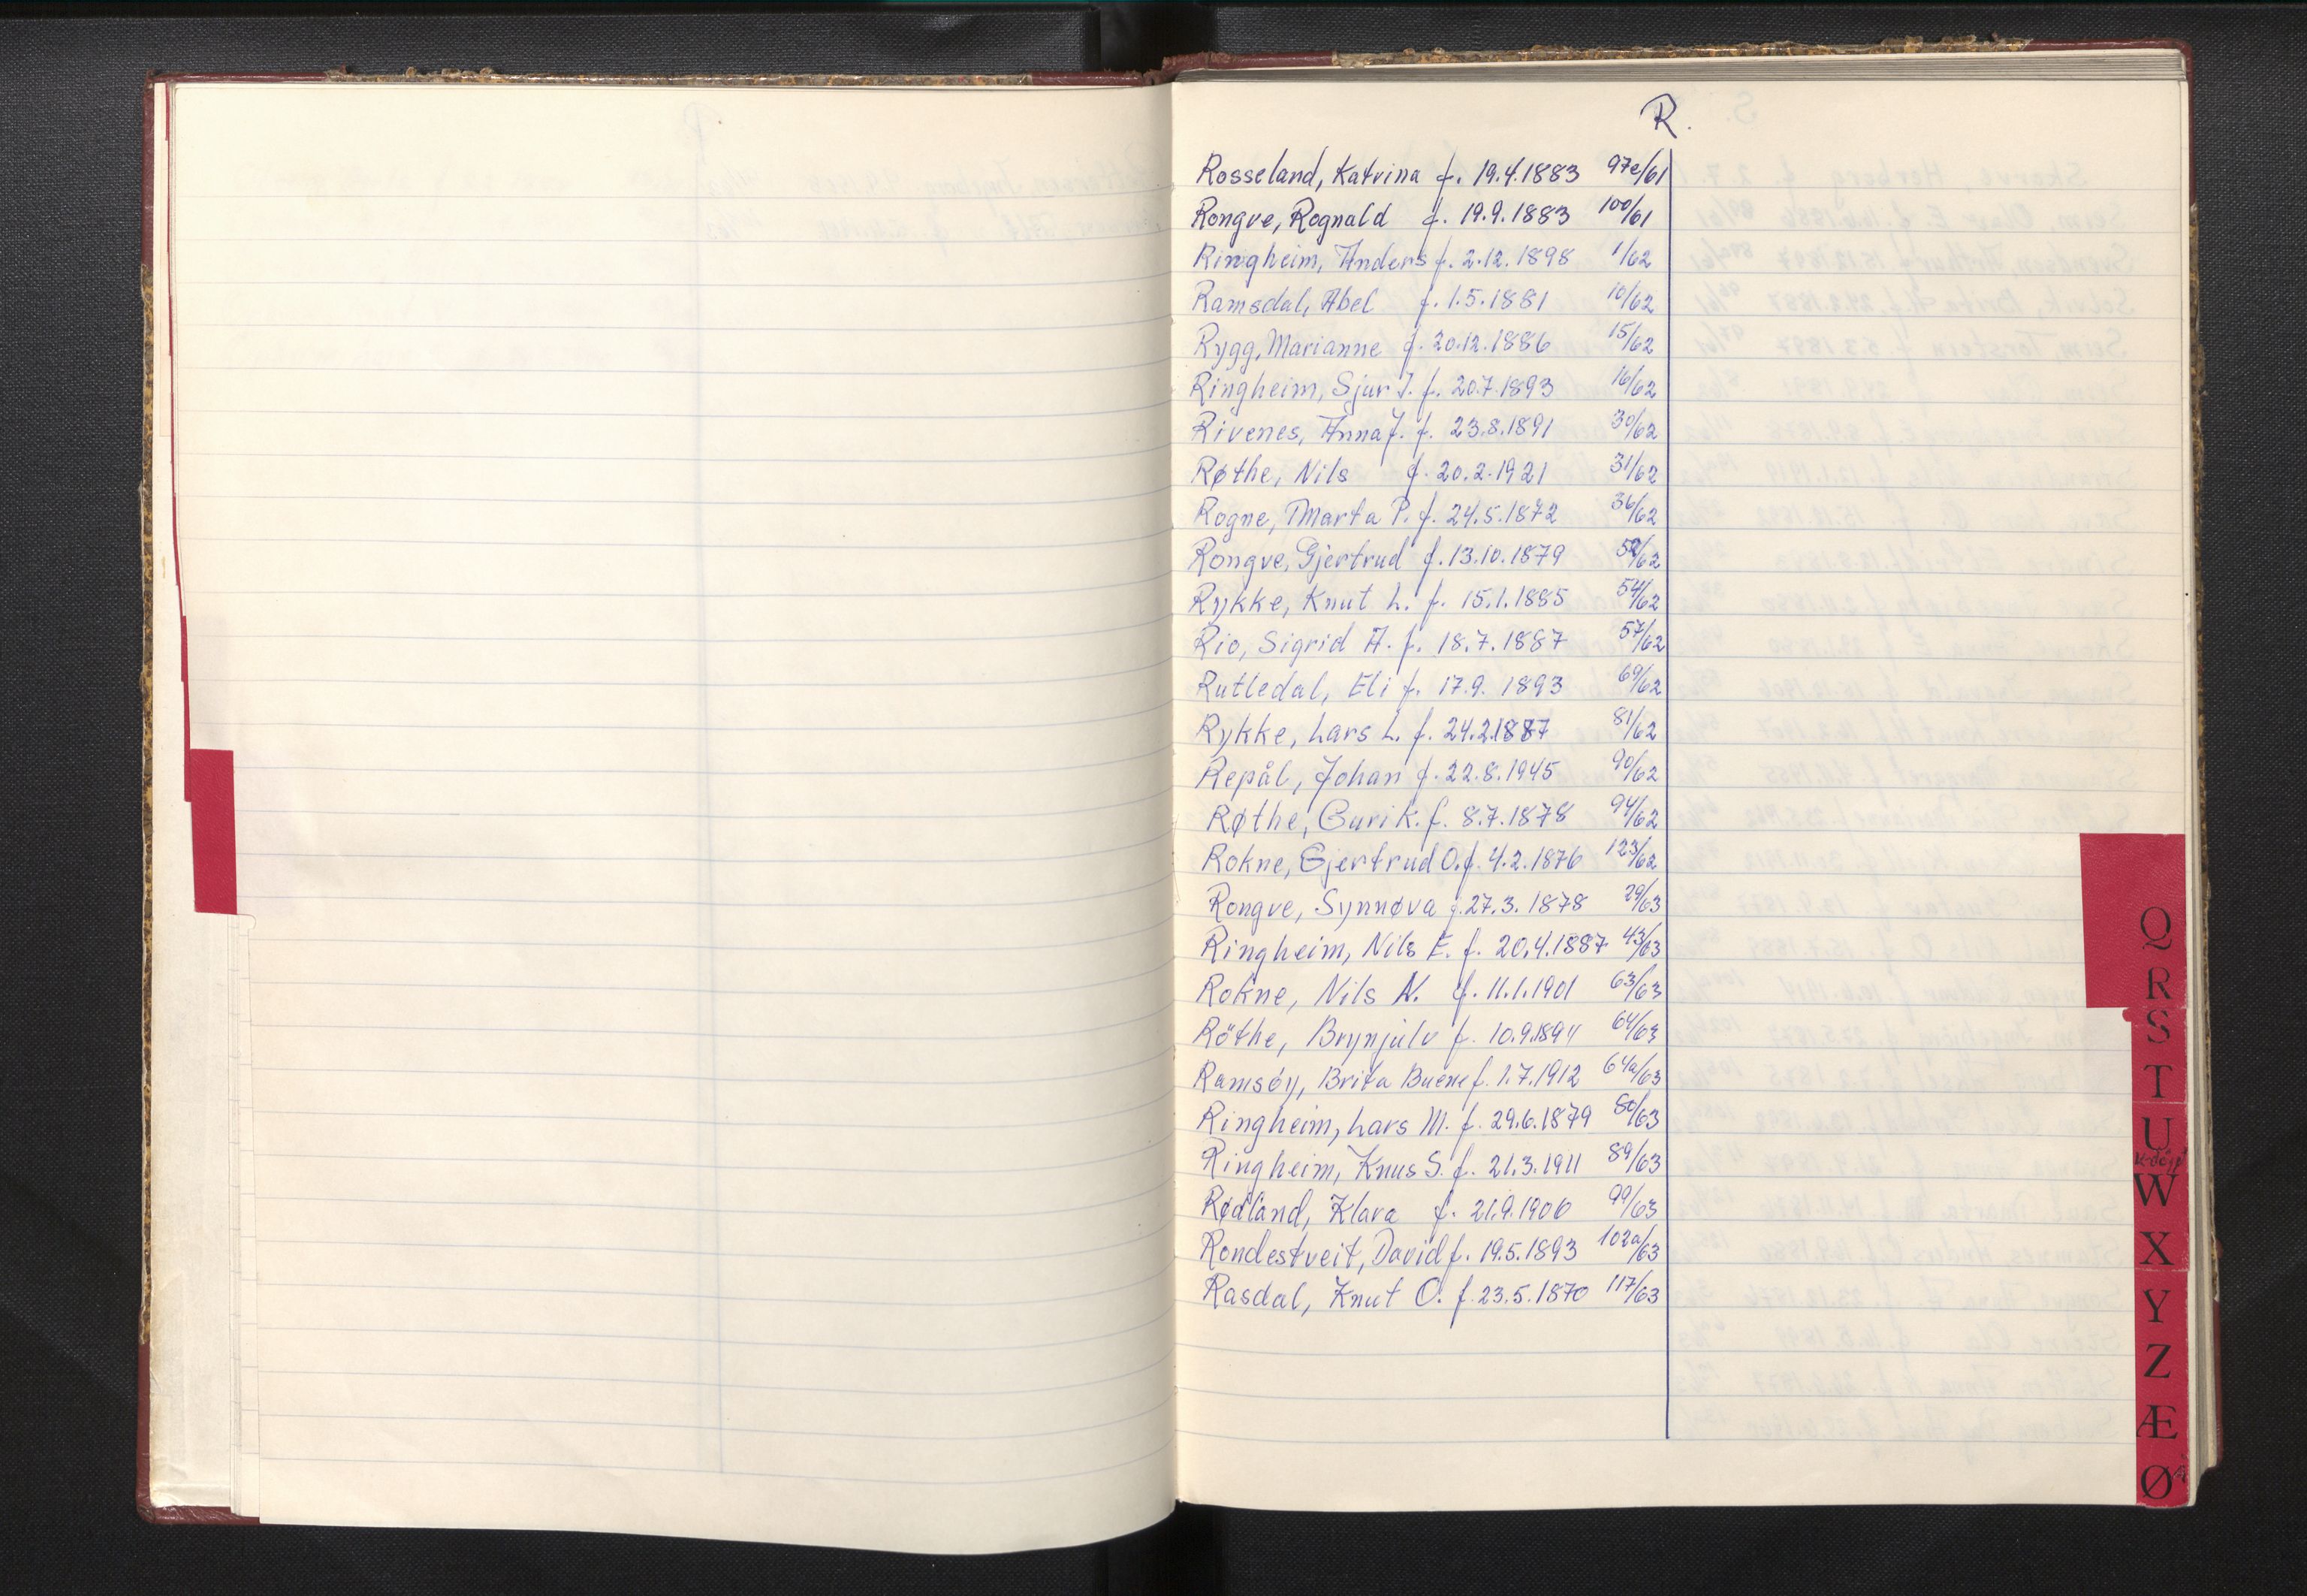 R.
Rosseland, Katrina f. 19.4.1883 97e/61
Rongve, Rognald f. 19.9.1883 100/61
Ringheim, Anders f. 2.12.1898 1/62
Ramsdal, Abel f. 1.5.1881 10/62
Rygg, Marianne f. 20.12.1886 15/62
Ringheim, Sjur J. f. 20.7.1893 16/62
Rivenes, Anna J. f. 23.8.1891 30/62
Røthe, Nils f. 20.2.1921 31/62
Rogne, Marta P. f. 24.5.1872 36/62
Rongve, Gjertrud f. 13.10.1879 52/62
Rykke, Knut L. f. 15.1.1885 54/62
Rio, Sigrid A. f. 18.7.1887 57/62
Rutledal, Eli f. 17.9.1893 69/62
Rykke, Lars L. f. 24.2.1887 81/62
Repål, Johan f. 22.8.1945 90/62
Røthe, Guri K. f. 8.7.1878 94/62
Rokne, Gjertrud O. f. 4.2.1876 123/62
Rongve, Synnøva f. 27.3.1878 29/63
Ringheim, Nils E. f. 20.4.1887 43/63
Rokne, Nils N. f. 11.1.1901 63/63
Röthe, Brynjulv f. 10.9.1894 64/63
Ramsöy, Brita Buene f. 1.7.1912 64a/63
Ringheim, Lars M. f. 29.6.1879 80/63
Ringheim, Knus S. f. 21.3.1911 89/63
Rødland, Klara f. 21.9.1906 99/63
Rondestveit, David f. 19.5.1893 102a/63
Rasdal, Knut O. f. 23.5.1870 117/63
Q
R
S
T
U
W
X
Y
Z
Æ
Ø